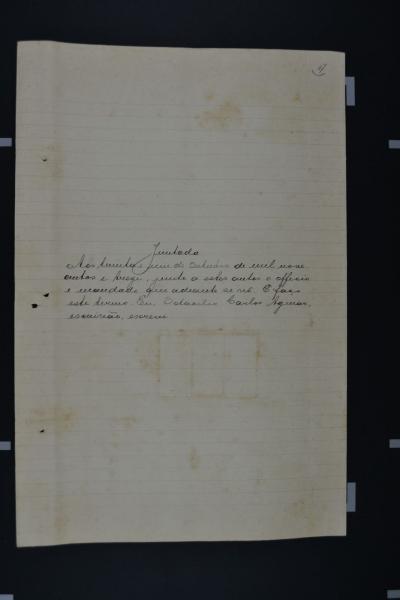 Juntada
Aos trinta e um de Outubro de mil nove
centos e treze, junto a estes autos o officio
e mandado que adeante se vê. E faço
este termo. Eu, Carlos
escrivão, escrevi